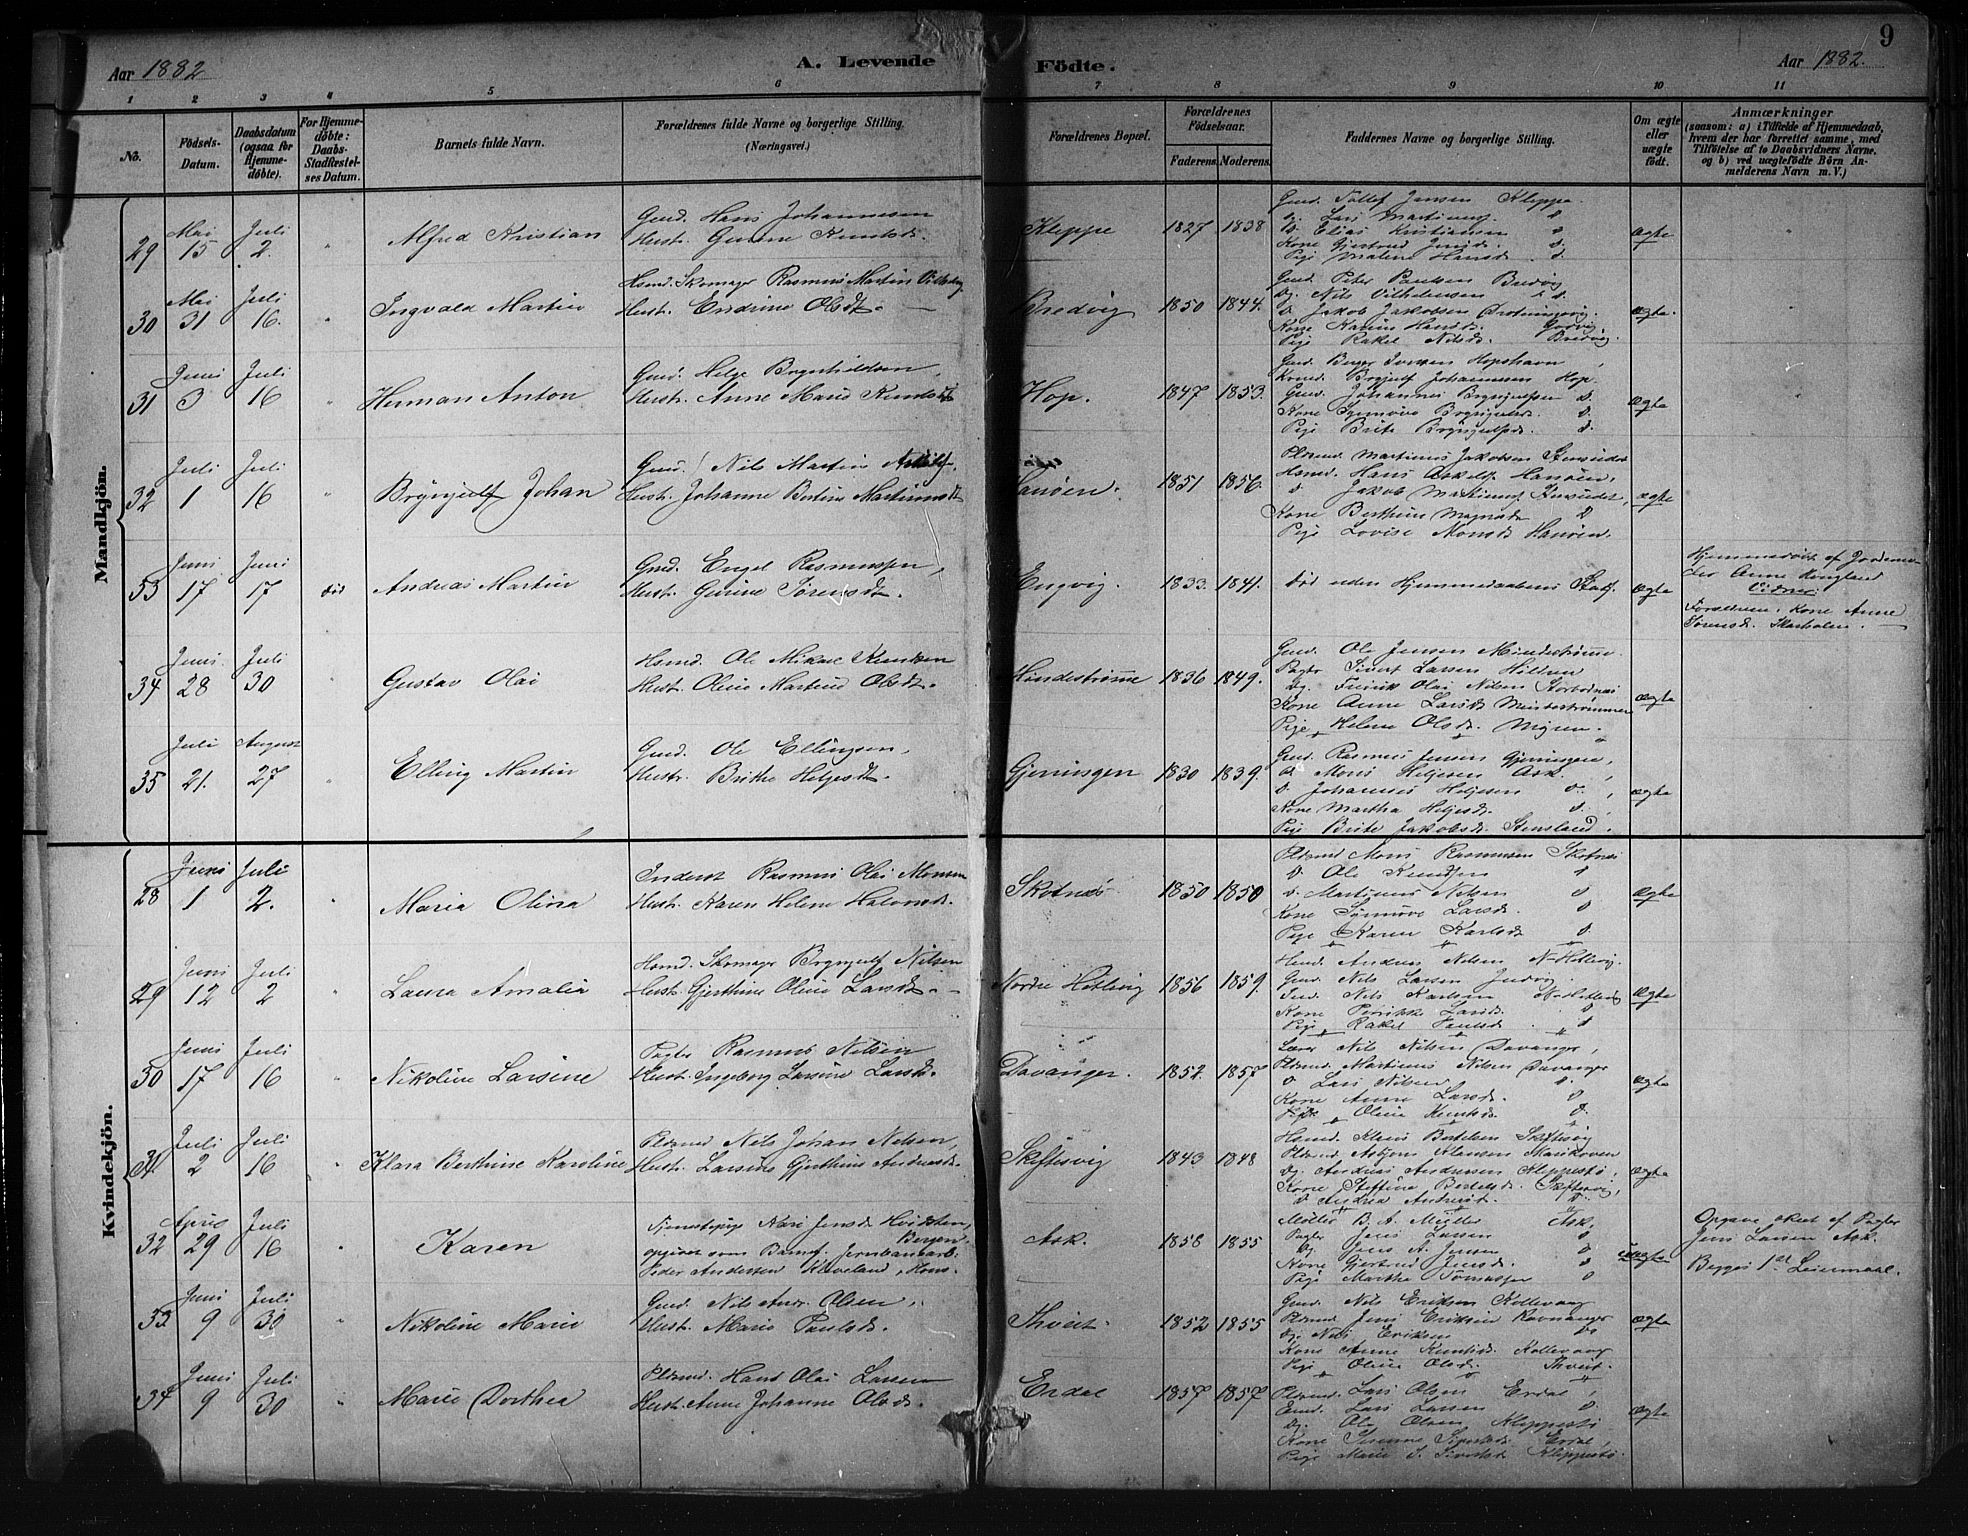 9
Aar 1882
A. Levende Födte.
Aar 1882.
1 2 3 4 5 6 7 8 9 10 11
No.
Födsels-Datum.
Daabsdatum (ogsaa for Hjemmedöbte).
For Hjemmedöbte: Daabs-Stadfæstelses Datum.
Barnets fulde Navn.
Forældrenes fulde Navne og borgerlige Stilling. (Næringsvei.)
Forældrenes Bopæl.
Forældrenes Födselsaar.
Faderens. Moderens.
Faddernes Navne og borgerlige Stilling.
Om ægte eller uægte födt.
Anmærkninger
(saasom: a) i Tilfælde af Hjemmedaab, hvem der har forrettet samme, med Tilföielse af to Daabsvidners Navne, og b) ved uægtefödte Börn Anmelderens Navn m. V.)
Mandkjön.
29 Mai 15 Juli 2. " Alfred Kristian
Gmd. Hans Johannesen
Hustr. Gurine Knutsd.
Kleppe 1827 1838
Gmd. Tollef Jensen Kleppe.
Dg. Lars Martinus. d
D. Elias Kristiansen d
Kone Gjertrud Jensd. d.
Pige Malene Hansd. d.
Ægte "
30 Mai 31 Juli 16. " Ingvald Martin
Hsmd. Skomager Rasmus Martin
Hustr. Endrine Olsdt.
Bredvig 1850 1844.
Gmd. Peter Paulsen Bredvig
Dg. Nils Vilhelmsen d.
D Jakob Jakobsen
Kone Karine Hansd. Godvig.
Pige Rakel Nilsd. Bredvig.
Ægte. "
31 Juni 3 Juli 16 " Herman Anton
Gmd. Helge Brynhildsen,
Hustr. Anne Marie Knutsdt
Hop. 1847 1853.
Gmd. Hopshavn,
Johannesen Hop.
Gmd. Johannes Brynjulfsen d.
Kone Synnøve Brynjulfsd. d.
Pige Brite Brynjulfsd. d.
Ægte "
32 Juli 1 Juli 16 " Brynjulf Johan
Gmd. Nils Martin
Hustr. Johanne Bertine Martinusdt
Hanøen. 1851 1856.
Pldsmd Martinus Jakobsen
Hsmd. Hans Askelf. Hanøen,
d Jakob Martinus.
Kone Berthine Magnusd. D
Pige Lovise Monsd. Hanøen.
Ægte
33 Juni 17 Juni 17 død Andreas Martin
Gmd. Engel Rasmussen,
Hustr. Gurine Sørensdt.
Engvig. 1833. 1841.
død uden Hjemmedaabens Stadf.
Ægte
Hjemmedøbt af Jordemo-
der Anne
Vidner:
Forældrene, Kone Anne
Sørensd. Skarholm.
34 Juni 28 Juli 30 " Gustav Olai
Hsmd. Ole Mikal Knutsen
Hustr. Oline Martine Olsdt.
1836 1849.
Gmd. Ole Jensen
Pagter Sivert Larsen
Dg. Fredrik Olai Nilsen
Kone Anne Larsd.
Pige Helene Olsd.
Ægte
35 Juli 21. August 27 " Elling Martin
Gmd. Ole Ellingsen,
Hustr. Brithe Helgesdt.
Gjerningen 1830 1839.
Gmd. Rasmus Jensen Gjerningen,
d. Mons Helgesen Ask.
d. Johannes Helgesen d.
Kone Martha Helgesd. d.
Pige Brite Jakobsd. Stensland.
Ægte
Kvindekjön.
28 Juni 1 Juli 2. " Maria Olina
Inderst Rasmus Olai Monsen
Hustr. Karen Helene Halvorsd.
Skotnæs 1850 1850
Pldsmd Mons Rasmussen Skotnæs
D. Ole Knudsen d
d. Martinus Nilsen d
Kone Synnøve Larsd. d
Pige Karen Karlsd. d.
Ægte
29 Juni 12 Juli 2 " Laura Amalia
Hsmd. Skomager Brynjulf Nilsen
Hustr. Gjerthine Oline Larsdt.
Nordre Hetlevig 1856 1859.
Hsmd. Andreas Nilsen N. Hetlevig.
Gmd. Nils Larsen
Nils Karlsen N. Hetlevig
Kone Larsd. d
Pige Rakel Paulsd. d
Ægte
30 Juni 17 Juli 16 " Nikoline Larsine
Pagter Rasmus Nilsen
Hustr. Ingeborg Larsine Larsdt.
Davanger. 1852. 1857
Lærer Nils Nilsen Davanger,
Pldsmd. Martinus Nilsen Davanger
D Lars Nilsen d.
Kone Anne Larsd. d
Pige Oline Knutsd. D.
Ægte
31 Juli 2 Juli 16 " Klara Berthine Karoline
Pldsmd Nils Johan Nilsen,
Hustr. Larsine Gjerthine Andreasd.
Skiftesvig 1843 1848
Hsmd. Klaus Bertelsen Skiftesvig
Pldsmd Asbjørn
Dg. Andreas Andersen Kleppestø,
Kone Steffine Bertelsd. Skiftesvig,
D. Andrea Andreasd. D.
Ægte
32 April 29 Juli 16 " Karen
Tjenestepige Kari Jensd. Hvidsten, Bergen,
opgiver som Barnef. Jernbanearb.
Peder Andersen Kleveland, Hous.
Ask. 1858 1855
Møller B. A. Müller Ask,
Pagter Jens Larsen d
Dg. Jens A. Jensen d
Kone Gjertrud Jensd. d
Pige Martha Tomasses d
uægte
Opgave skeet af Pagter
Jens Larsen Ask.
Begges 1ste Leiermaal.
33 Juni 9 Juli 30 " Nikoline Marie
Gmd. Nils Andr. Olsen,
Hustr. Marie Paulsd.
Thveit. 1852 1855
Gmd. Nils Eriksen Kollevaag
Pldsmd Jens Eriksen Ravnanger
Dg. Nils Eriksen do
Kone Anne Knutsd. Kollevaag
Pige Oline Olsd. Thveit.
Ægte
34 Juni 9 Juli 30 " Marie Dorthea
Pldsmd. Hans Olai Larsen
Hustr. Anne Johanne Olsd.
Erdal 1857 1857
Pldsmd. Lars Olsen Erdal,
Gmd. Lars Larsen d.
Dg. Ole Olsen Kleppestø
Kone Erdal,
Pige Marie S. Sivertsd. Kleppestø.
Ægte